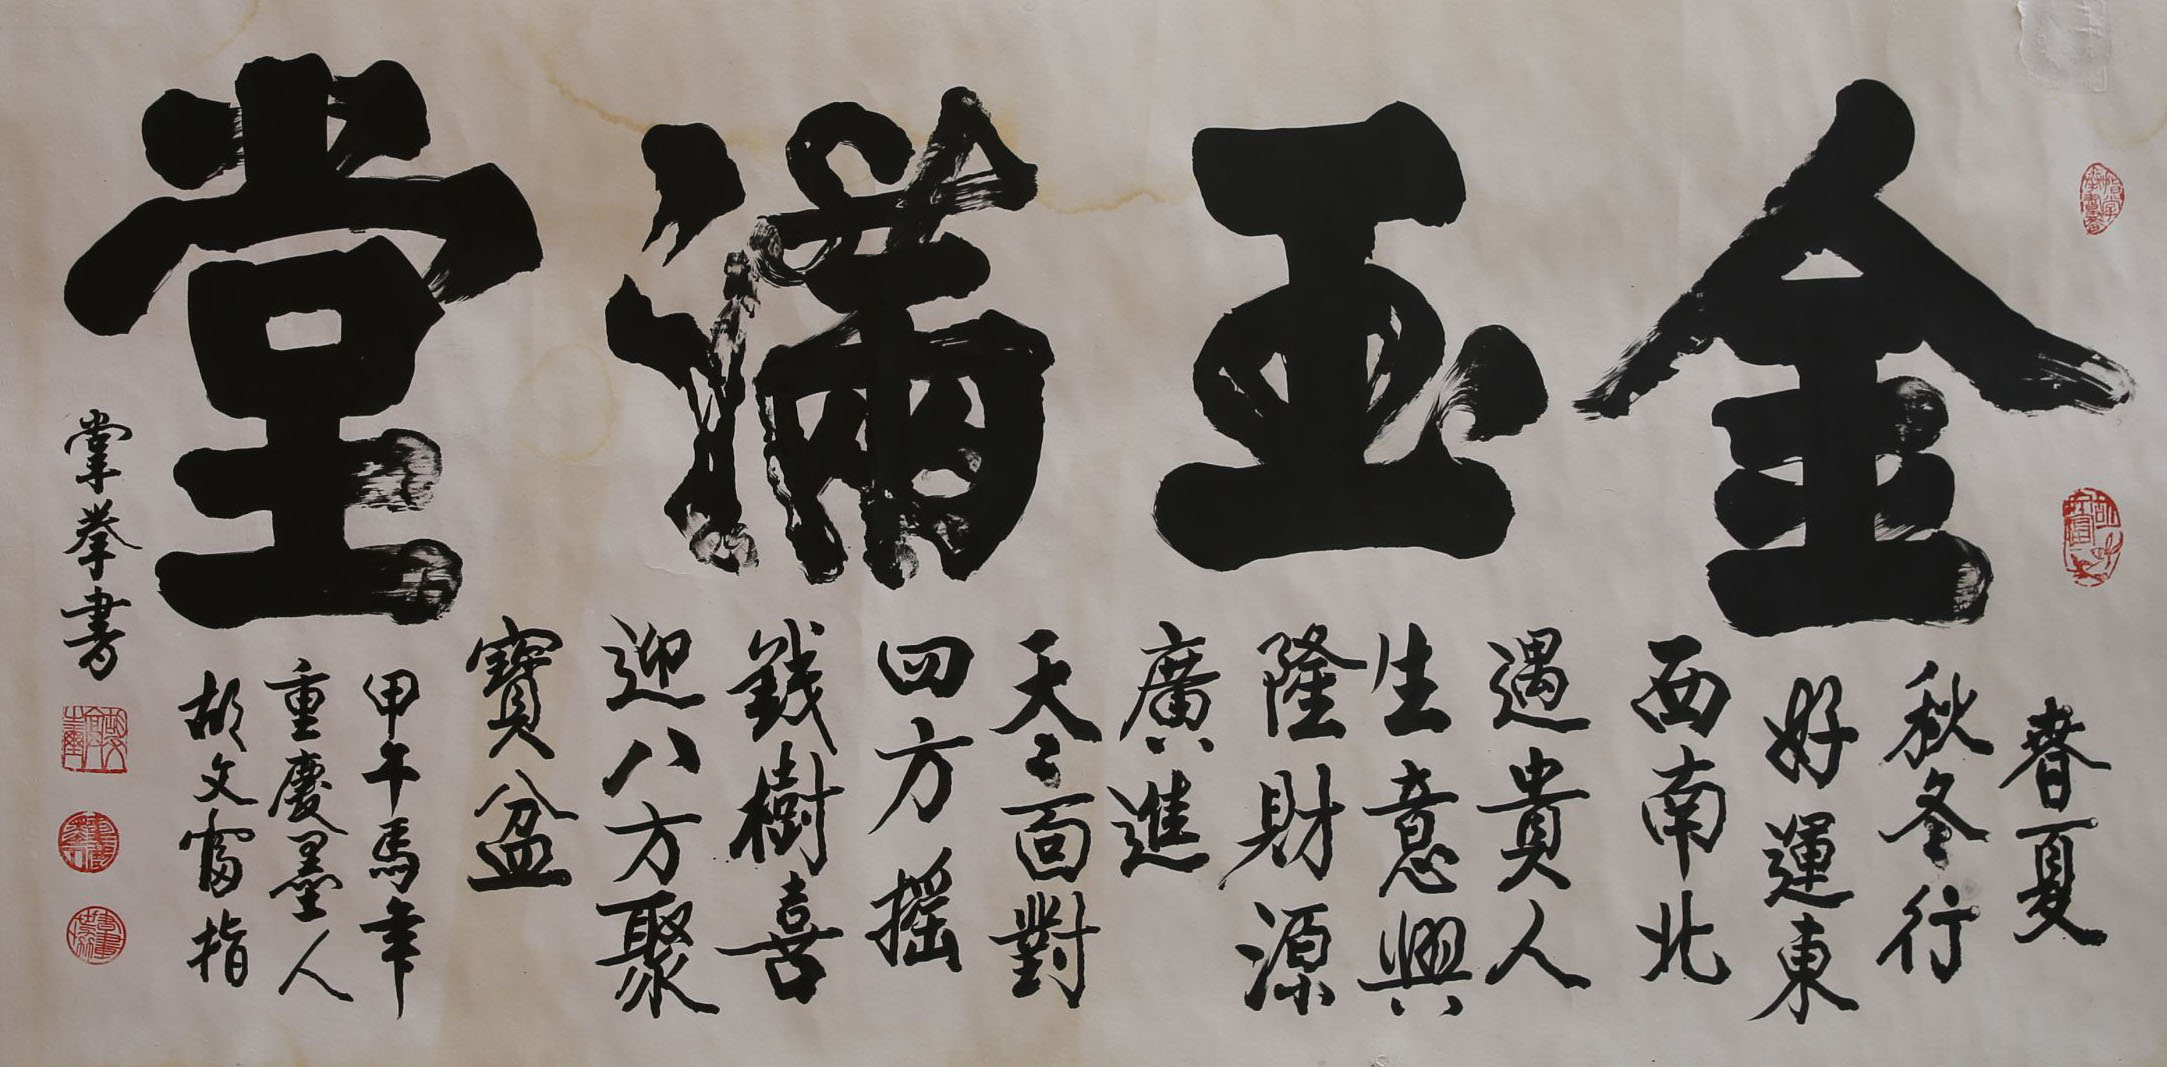 金玉滿堂
春夏
秋冬行
好運東
西南北
遇貴人
生意興
隆財源
廣進
天〻面對
四方摇
錢樹喜
迎八方聚
寶盆
甲午馬年
重慶墨人
胡文富指
掌拳書